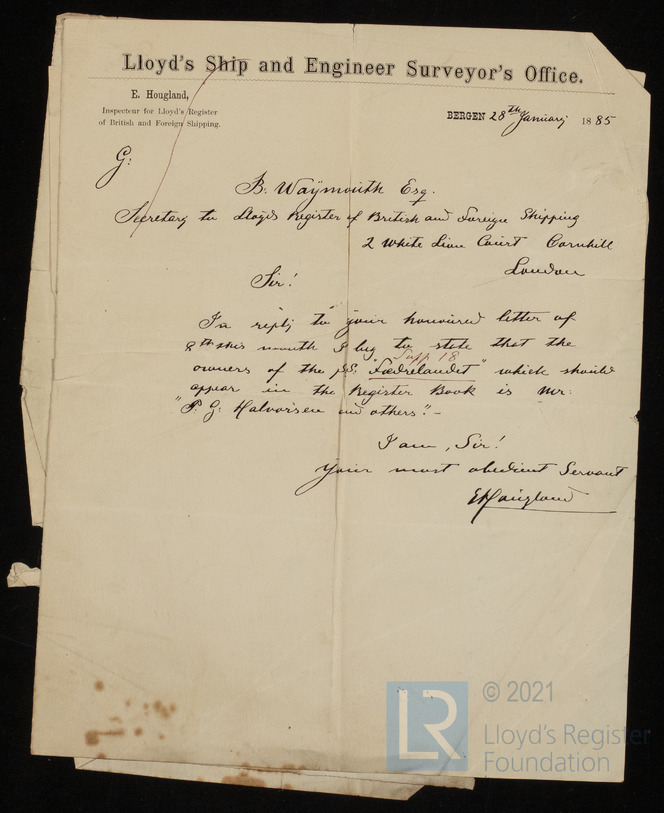 Lloyd's Ship and Engineer Surveyor's Office.
E. Hougland,
Inspecteur for Lloyd's Register
of British and Foreign Shipping.
BERGEN 28th January 1885
G:
B. Waymouth Esq.
Secretary to Lloyds Register of British and Foreign Shipping
2 White Lion Court Cornhill
London
Sir!
In reply to your honoured letter of
8th this month I beg to state that the
Supp 18
owners of the s/S. "Fædrelandet" which should
appear in the Register Book is Mr:
"P. G. Halvorsen and others". -
I am, Sir!
Your most obedient Servant
EHougland
LR
© 2021
Lloyd's Register
Foundation